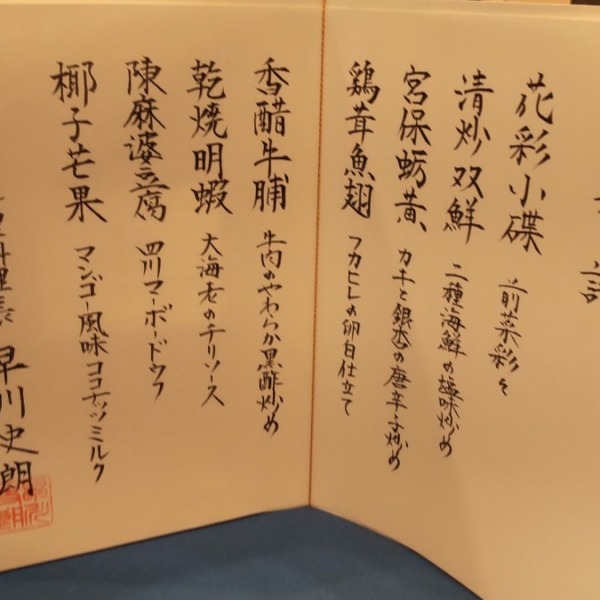 花彩小碟 前菜彩々
清炒双鮮 二種海鮮の極味炒め
宮保蛎黄 カキと銀杏の唐辛子炒め
鶏茸魚翅 フカヒレの卵白仕立て
香醋牛脯 牛肉のやわらか黒酢炒め
乾焼明蝦 大海老のチリソース
陳麻婆豆腐 四川マーボードウフ
椰子芒果 マンゴー風味ココナッツミルク
料理長 早川史朗